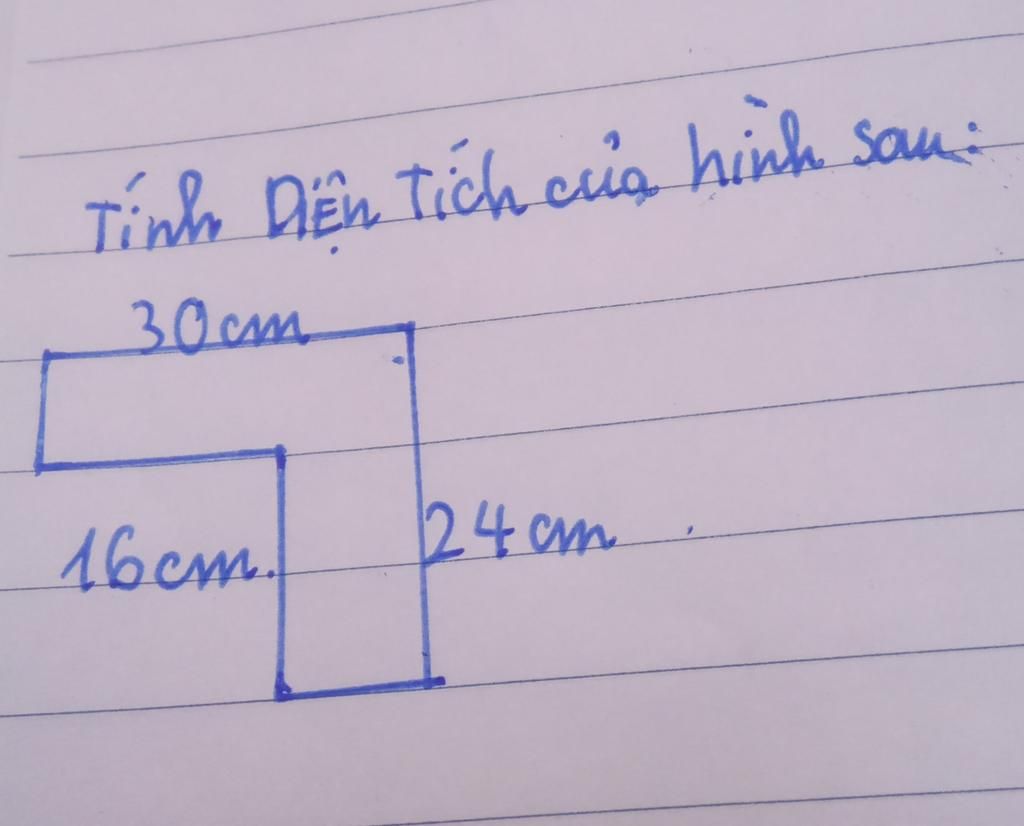 Tính Diện Tích của hình sau:
30cm
16cm.
24cm